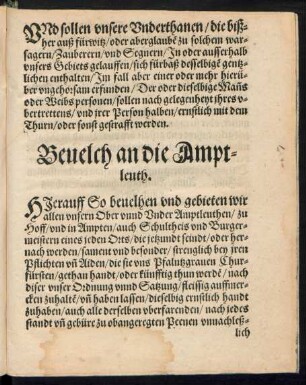 VNd sollen vnsere Vnderthanen / die biß-
her auß fürwitz / oder aberglaubē zu solchem war-
sagern / Zauberern / vnd Segnern / In oder ausserhalb
vnsers Gebiets gelauffen / sich fürbaß desselbigē gentz-
lichen enthalten / Im fall aber einer oder mehr hierü-
ber vngehorsam erfunden / Der oder dieselbige Mañs
oder Weibs personen / sollen nach gelegenheyt ihres v-
bertrettens / vnd jrer Person halben / ernstlich mit dem
Thurn / oder sonst gestrafft werden.
Beuelch an die Ampt-
leuth.
HIerauff So beuelhen vnd gebieten wir
allen vnsern Ober vnnd Vnder Amptleuthen / zu
Hoff / vnd in Ampten / auch Schultheis vnd Burger-
meistern eines jeden Orts / die jetzundt seindt / oder her-
nach werden / sament vnd besonder / strenglich bey jren
Pflichten vñ Aiden / die sie vns Pfaltzgrauen Chur-
fürsten / gethan handt / oder künfftig thun werdē / nach
diser vnser Ordnung vnnd Satzung / fleissig auffmer-
cken zuhaltē / vñ haben lassen / dieselbig ernstlich handt
zuhaben / auch alle derselben vberfarenden / nach jedes
standt vñ gebüre zu obangeregten Peenen vnnachleß-
lich